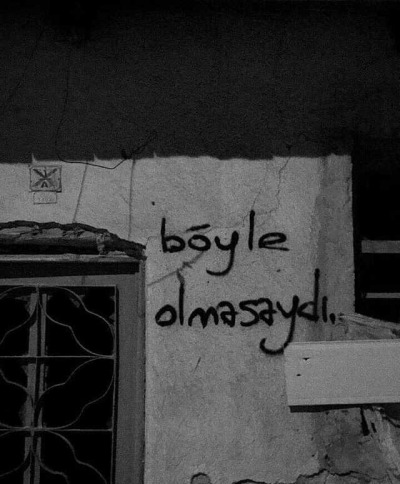 böyle
olmasaydı..